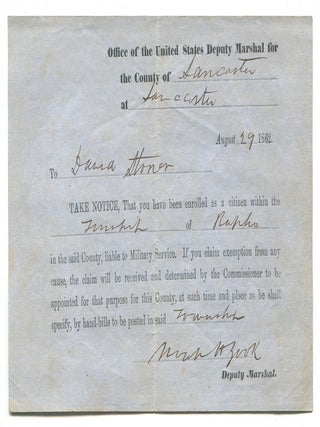 Office of the United States Deputy Marshal for
the County of Lancaster
at Lancaster
August 29 1862.
To David Stoner
TAKE NOTICE, That you have been enrolled as a citizen within the
Township of Rapho
in the said County, liable to Military Service. If you claim exemption from any
cause, the claim will be received and determined by the Commissioner to be
appointed for that purpose for this County, at such time and place as be shall
specify, by hand-bills to be posted in said Township
H Zook
Deputy Marshal.